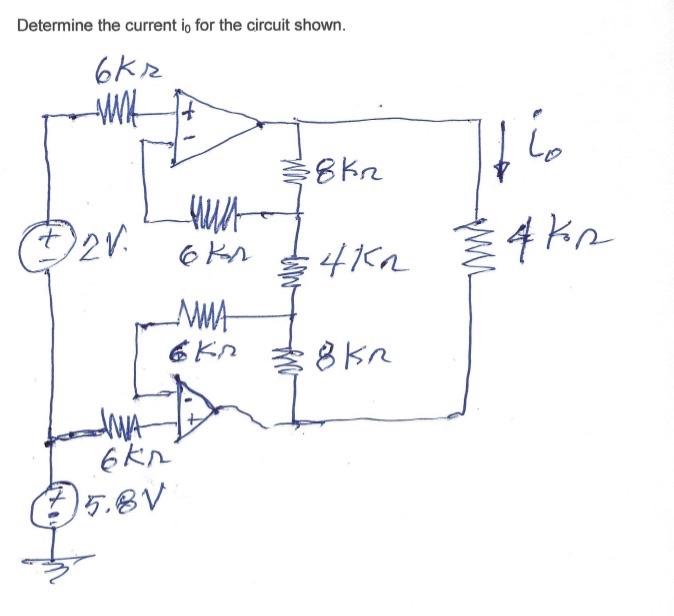 Determine the current i₀ for the circuit shown.
6KΩ
+
-
i₀
8KΩ
+
-
2V.
6KΩ
4KΩ
4KΩ
6KΩ
8KΩ
-
+
6KΩ
+
-
5.8V